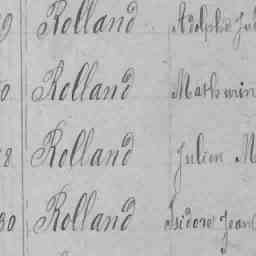 9 Rolland Adolphe
0 Rolland Mathurin
8 Rolland Julien M
30 Rolland Isidore Jean